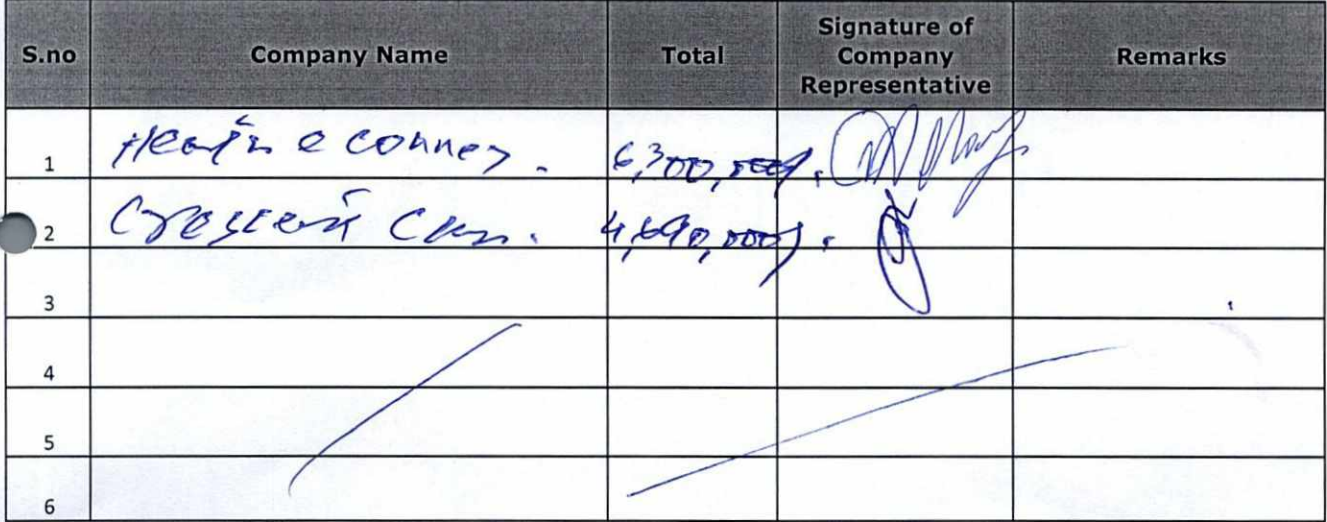 S.no Company Name Total Signature of Company Representative Remarks
1 Health e connex. 6,300,000/.
2 4,690,000/.
3
4
5
6